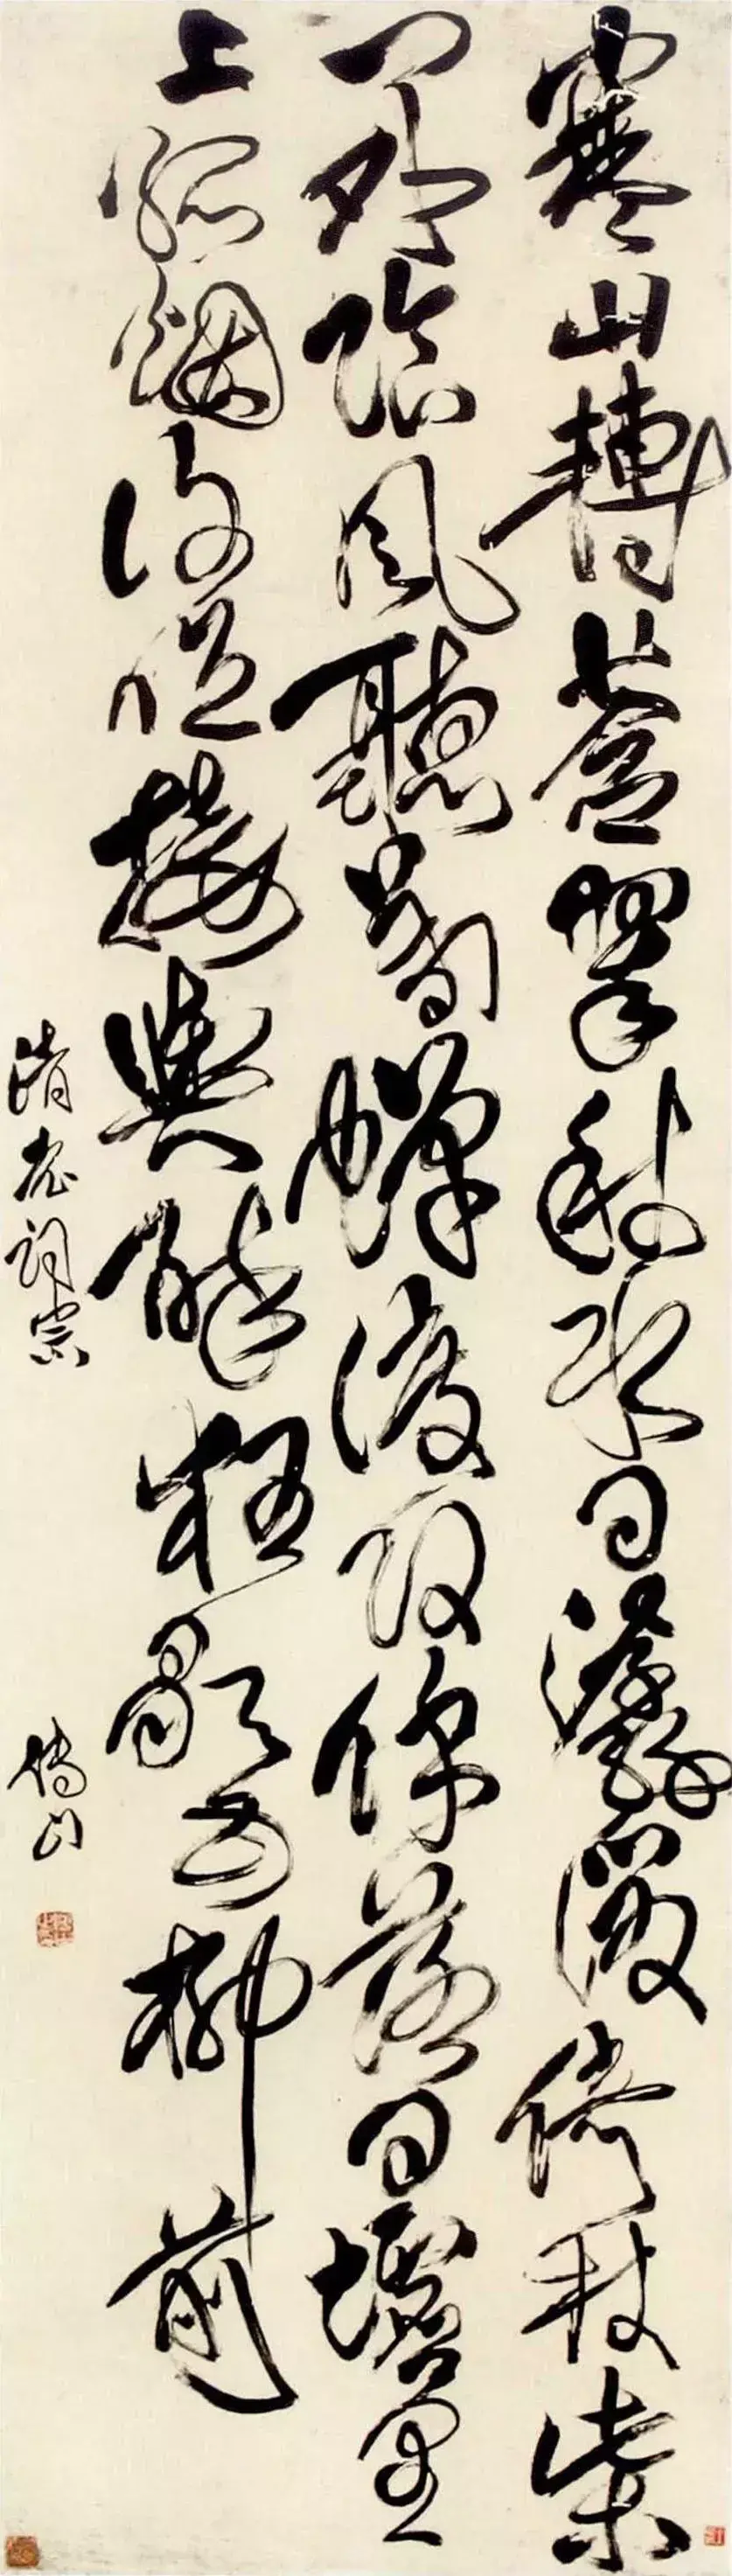 寒山轉蒼翠秋水日潺湲倚杖柴
門外臨風聽暮蟬渡頭餘落日墟里
上孤烟復值接輿醉狂歌五柳前
老詞宗
傅山